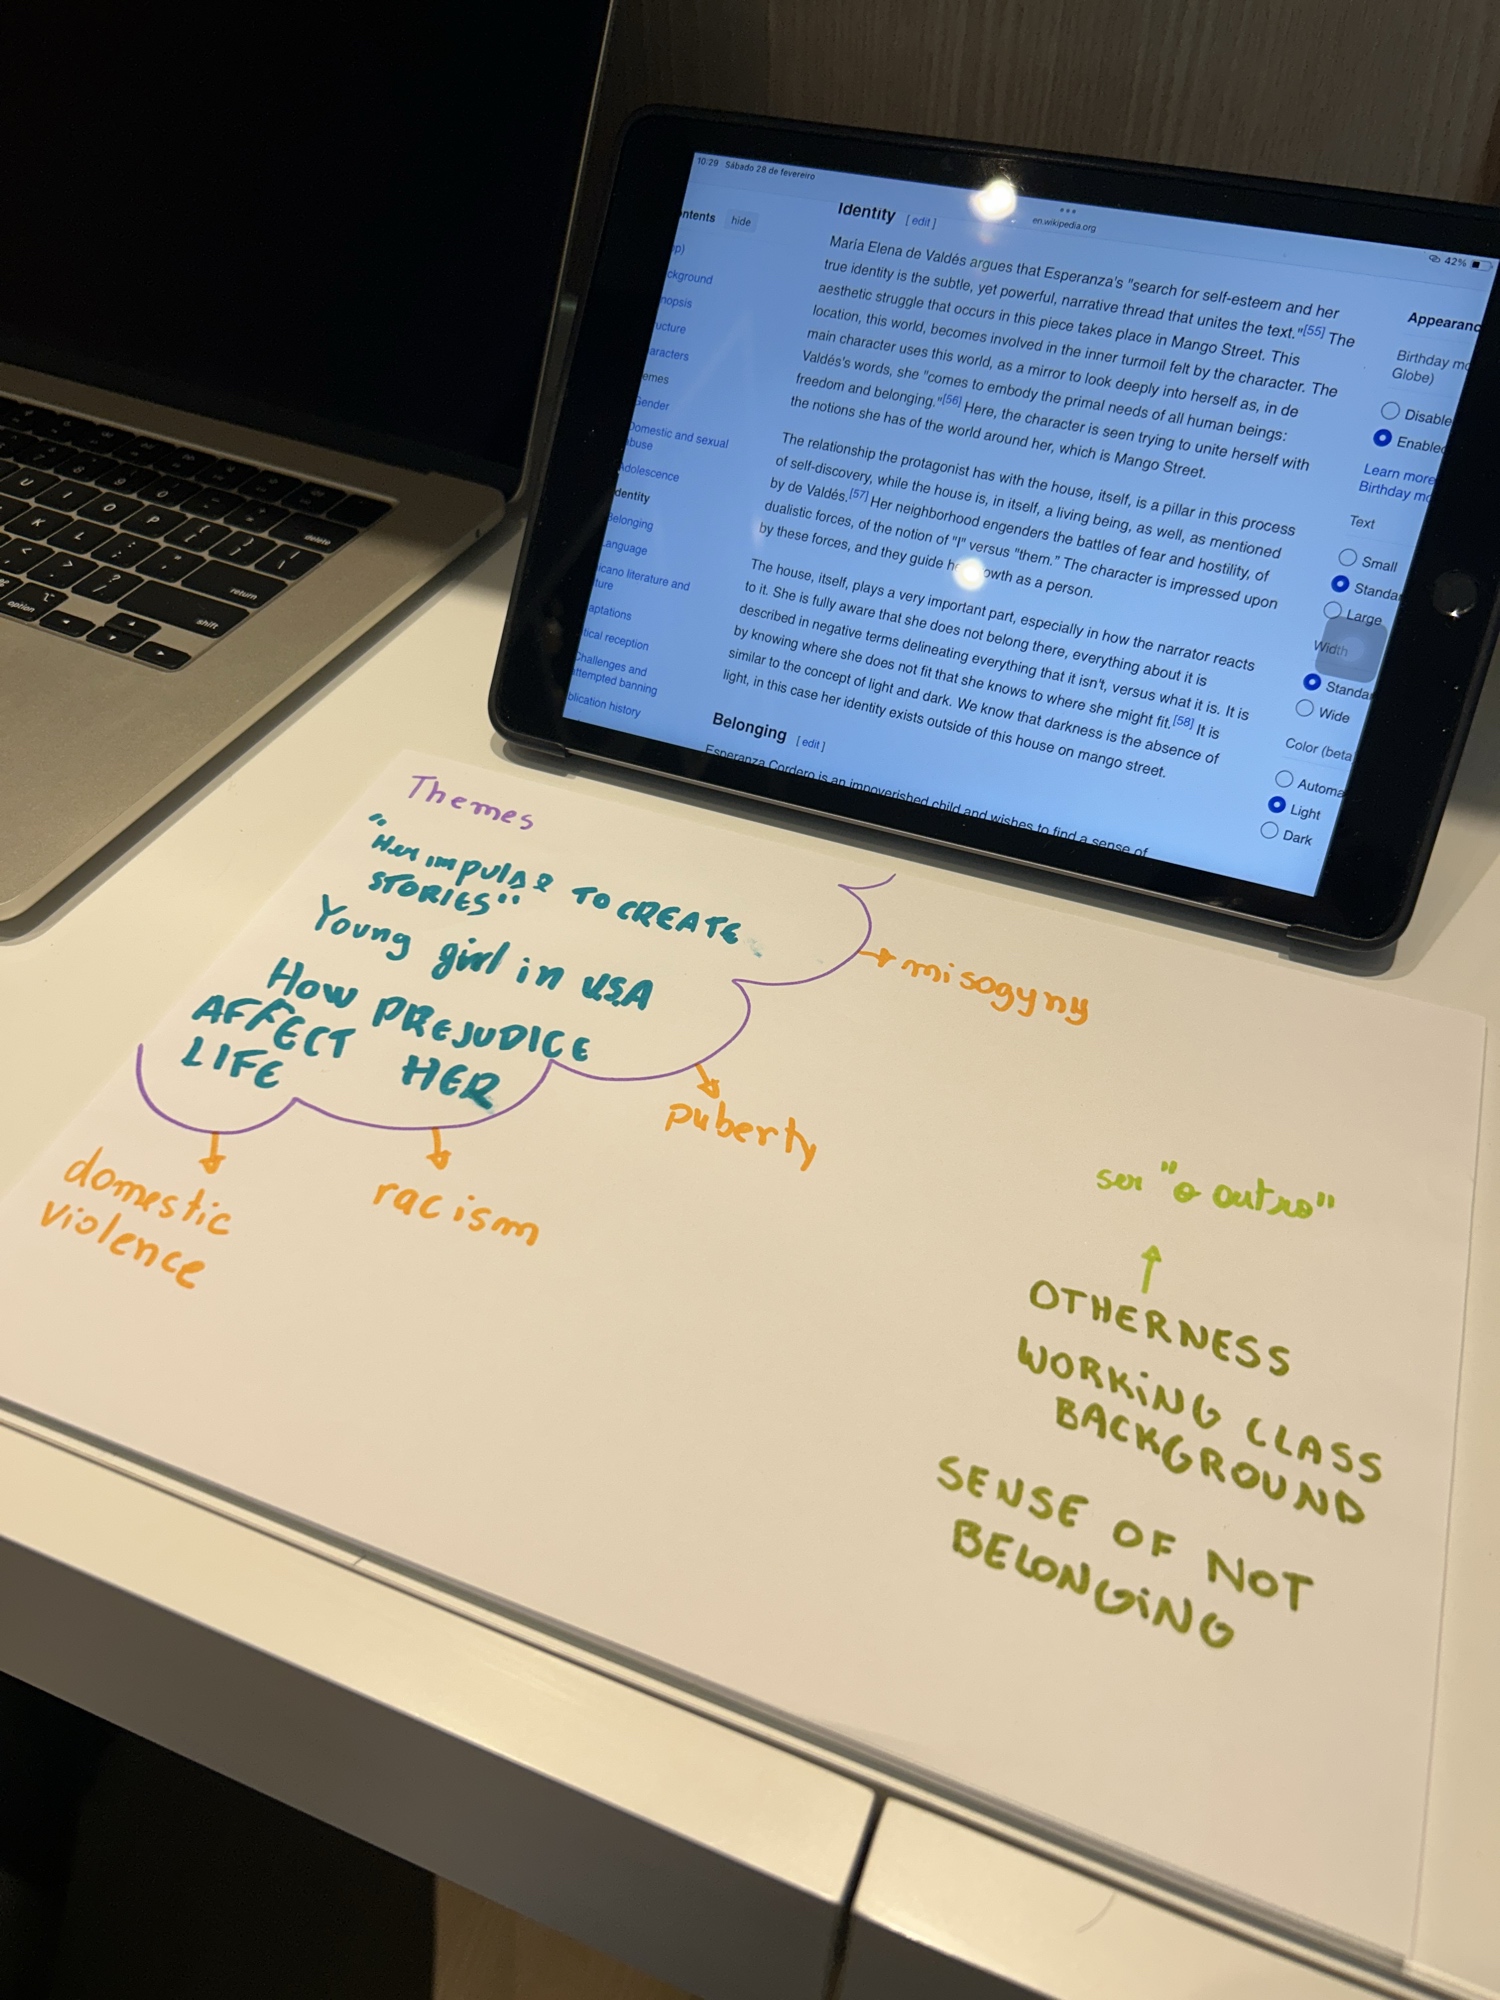 10:29 Sábado 28 de fevereiro
en.wikipedia.org
42%
ntents hide
p)
ckground
nopsis
ucture
aracters
emes
Gender
Domestic and sexual
buse
dolescence
dentity
Belonging
anguage
icano literature and
ture
aptations
tical reception
Challenges and
ttempted banning
blication history
Identity [ edit ]
María Elena de Valdés argues that Esperanza's "search for self-esteem and her
true identity is the subtle, yet powerful, narrative thread that unites the text."[55] The
aesthetic struggle that occurs in this piece takes place in Mango Street. This
location, this world, becomes involved in the inner turmoil felt by the character. The
main character uses this world, as a mirror to look deeply into herself as, in de
Valdés's words, she "comes to embody the primal needs of all human beings:
freedom and belonging."[56] Here, the character is seen trying to unite herself with
the notions she has of the world around her, which is Mango Street.
The relationship the protagonist has with the house, itself, is a pillar in this process
of self-discovery, while the house is, in itself, a living being, as well, as mentioned
by de Valdés.[57] Her neighborhood engenders the battles of fear and hostility, of
dualistic forces, of the notion of "I" versus "them." The character is impressed upon
by these forces, and they guide h owth as a person.
The house, itself, plays a very important part, especially in how the narrator reacts
to it. She is fully aware that she does not belong there, everything about it is
described in negative terms delineating everything that it isn't, versus what it is. It is
by knowing where she does not fit that she knows to where she might fit.[58] It is
similar to the concept of light and dark. We know that darkness is the absence of
light, in this case her identity exists outside of this house on mango street.
Belonging [ edit ]
Esperanza Cordero is an impoverished child and wishes to find a sense of
Appearanc
Birthday mo
Globe)
Disable
Enabled
Learn more
Birthday mo
Text
Small
Standa
Large
Width
Standa
Wide
Color (beta
Automa
Light
Dark
delete
return
shift
option
U I O P { [ } ]
K L : ; " '
< , > . ? /
Themes
"Her impulse TO CREATE
STORIES"
Young girl in USA
How PREJUDICE
AFFECT HER
LIFE
misogyny
puberty
racism
domestic
violence
ser "o outro"
OTHERNESS
WORKING CLASS
BACKGROUND
SENSE OF NOT
BELONGING